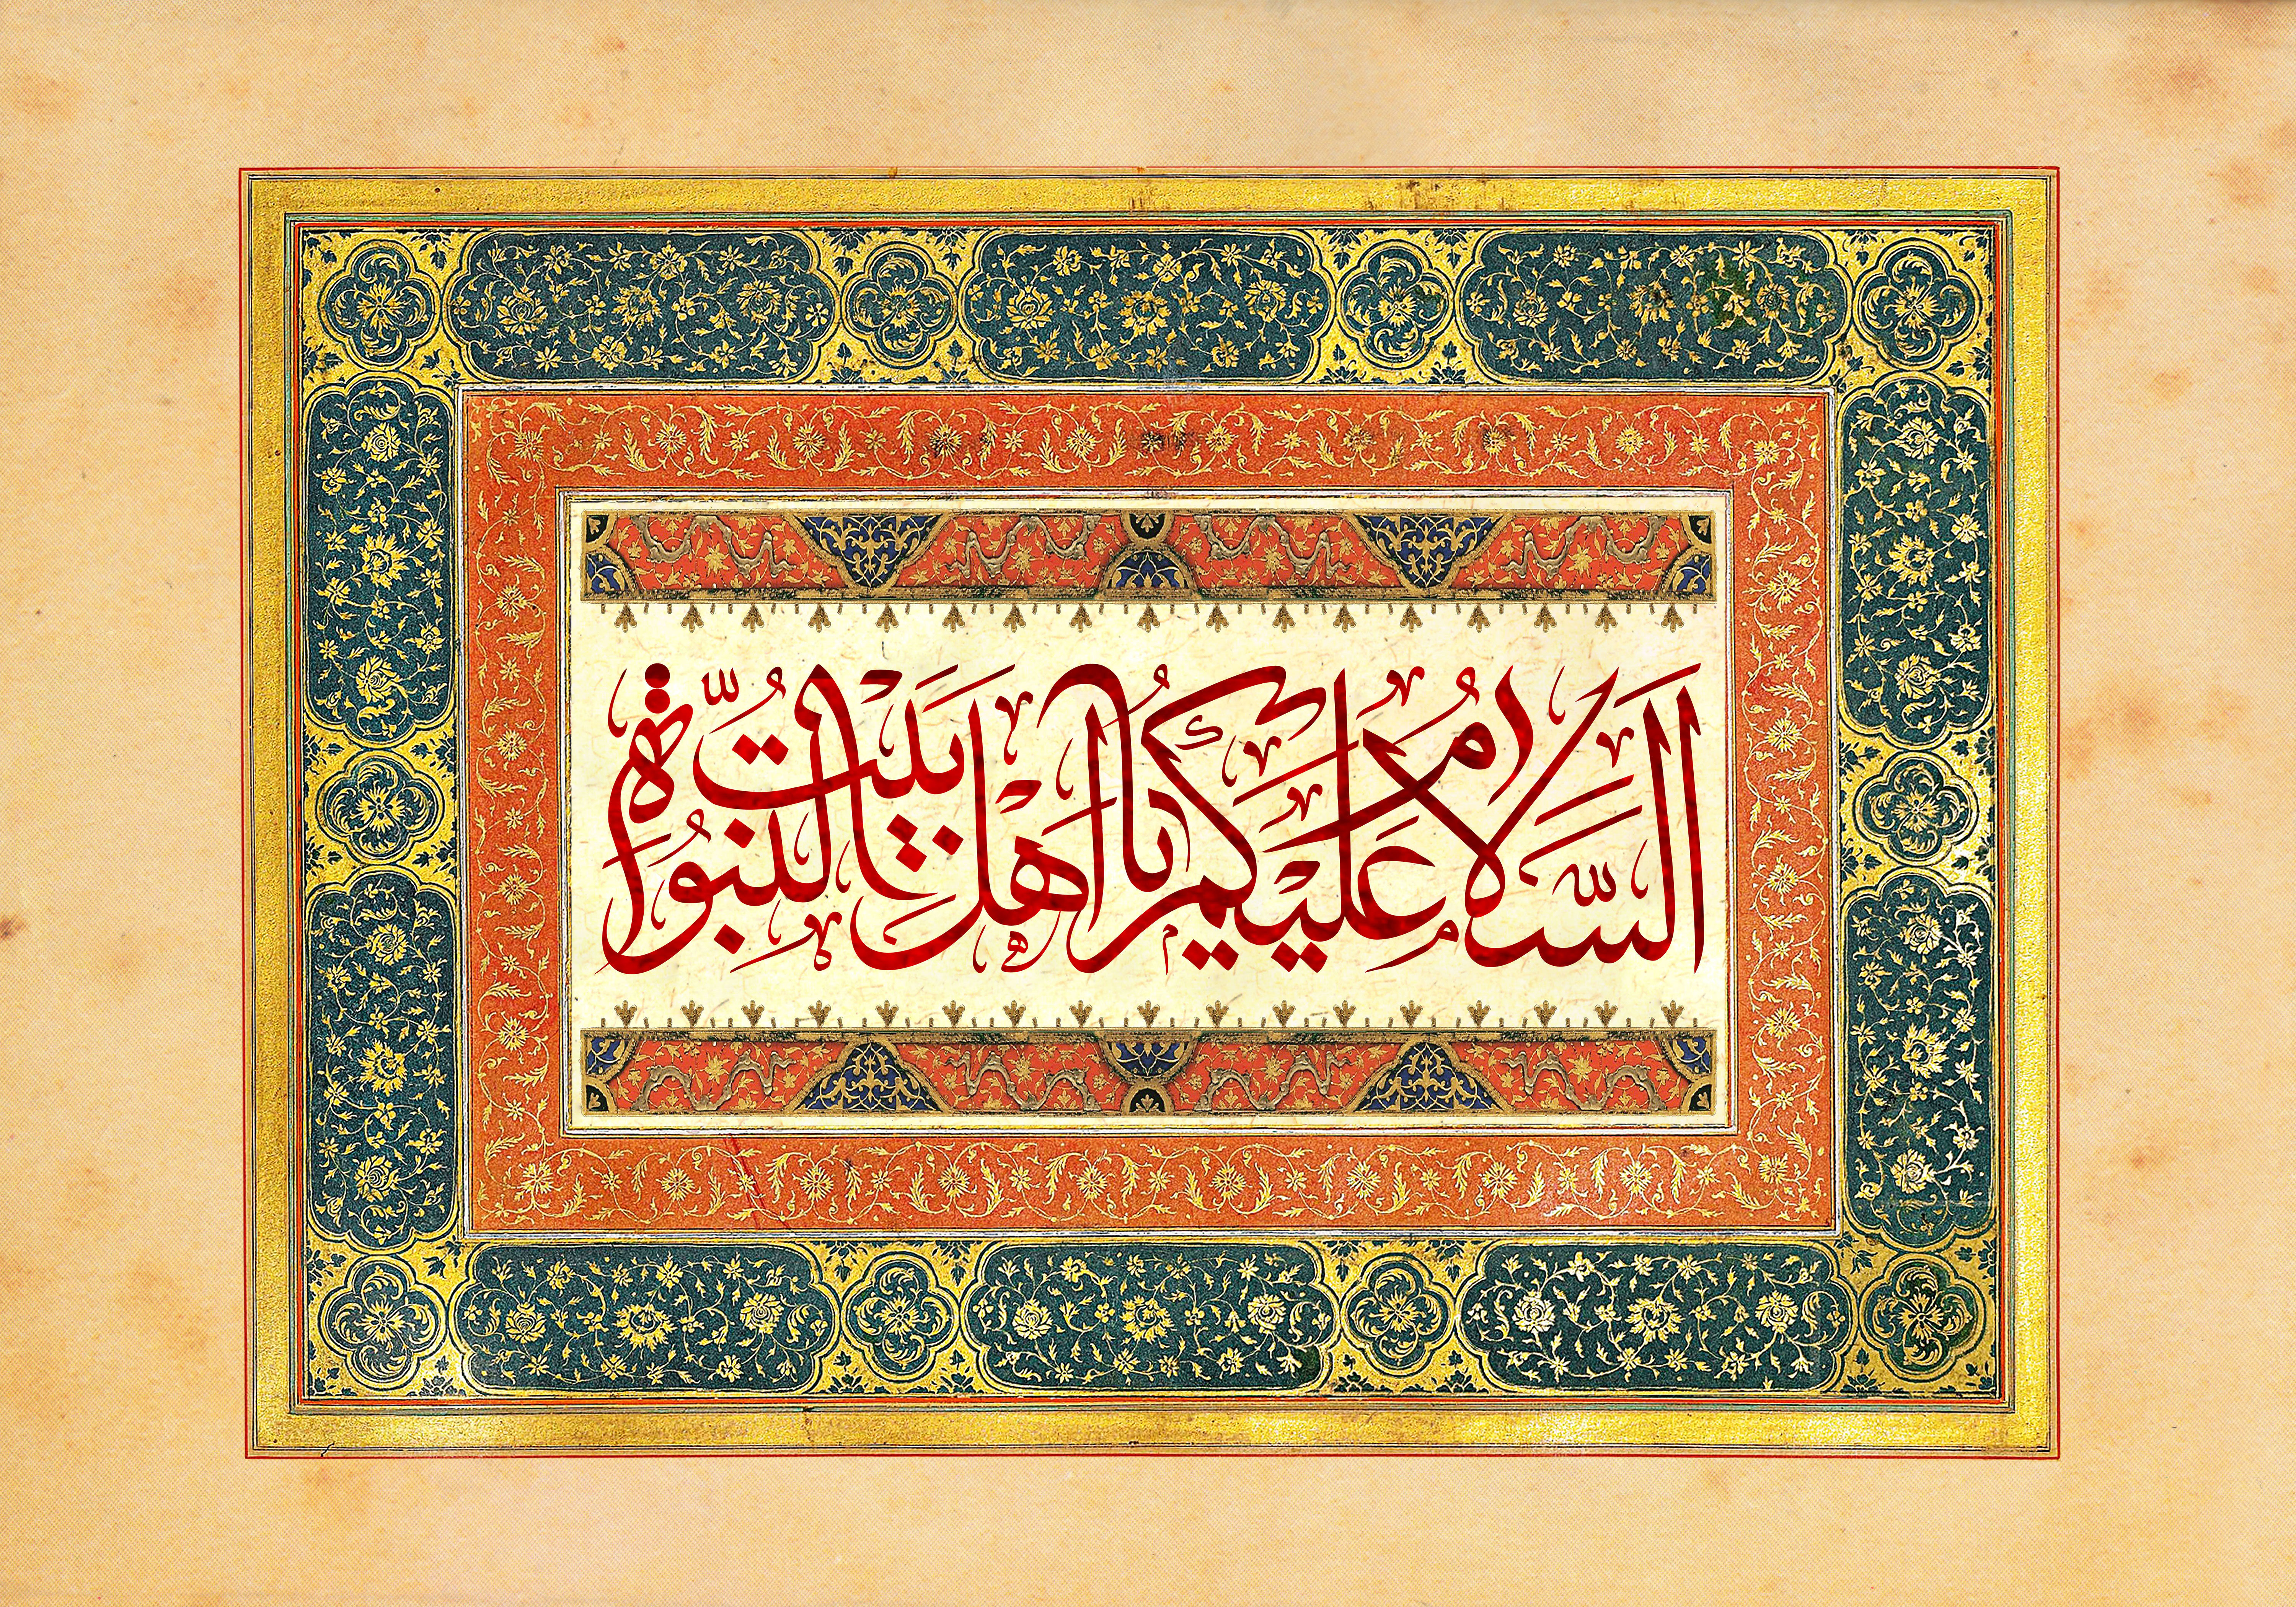 اَلسَّلَامُ عَلَيْكُمْ يَا اَهْلَ بَيْتِ النُّبُوَّةِ